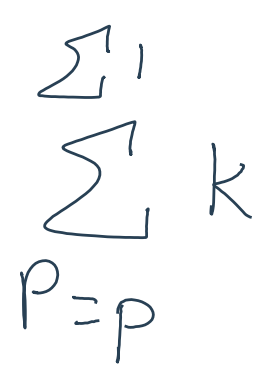 ∑ 1
∑ k
P = p